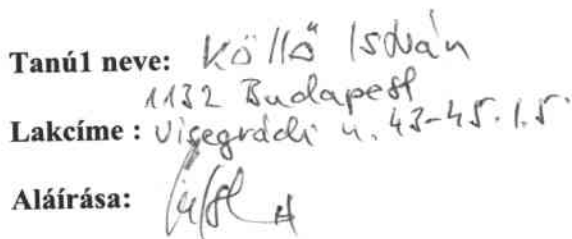 Tanú1 neve: Köllő István
1132 Budapest
Lakcíme : Visegrádi u. 43-45. I.5.
Aláírása: